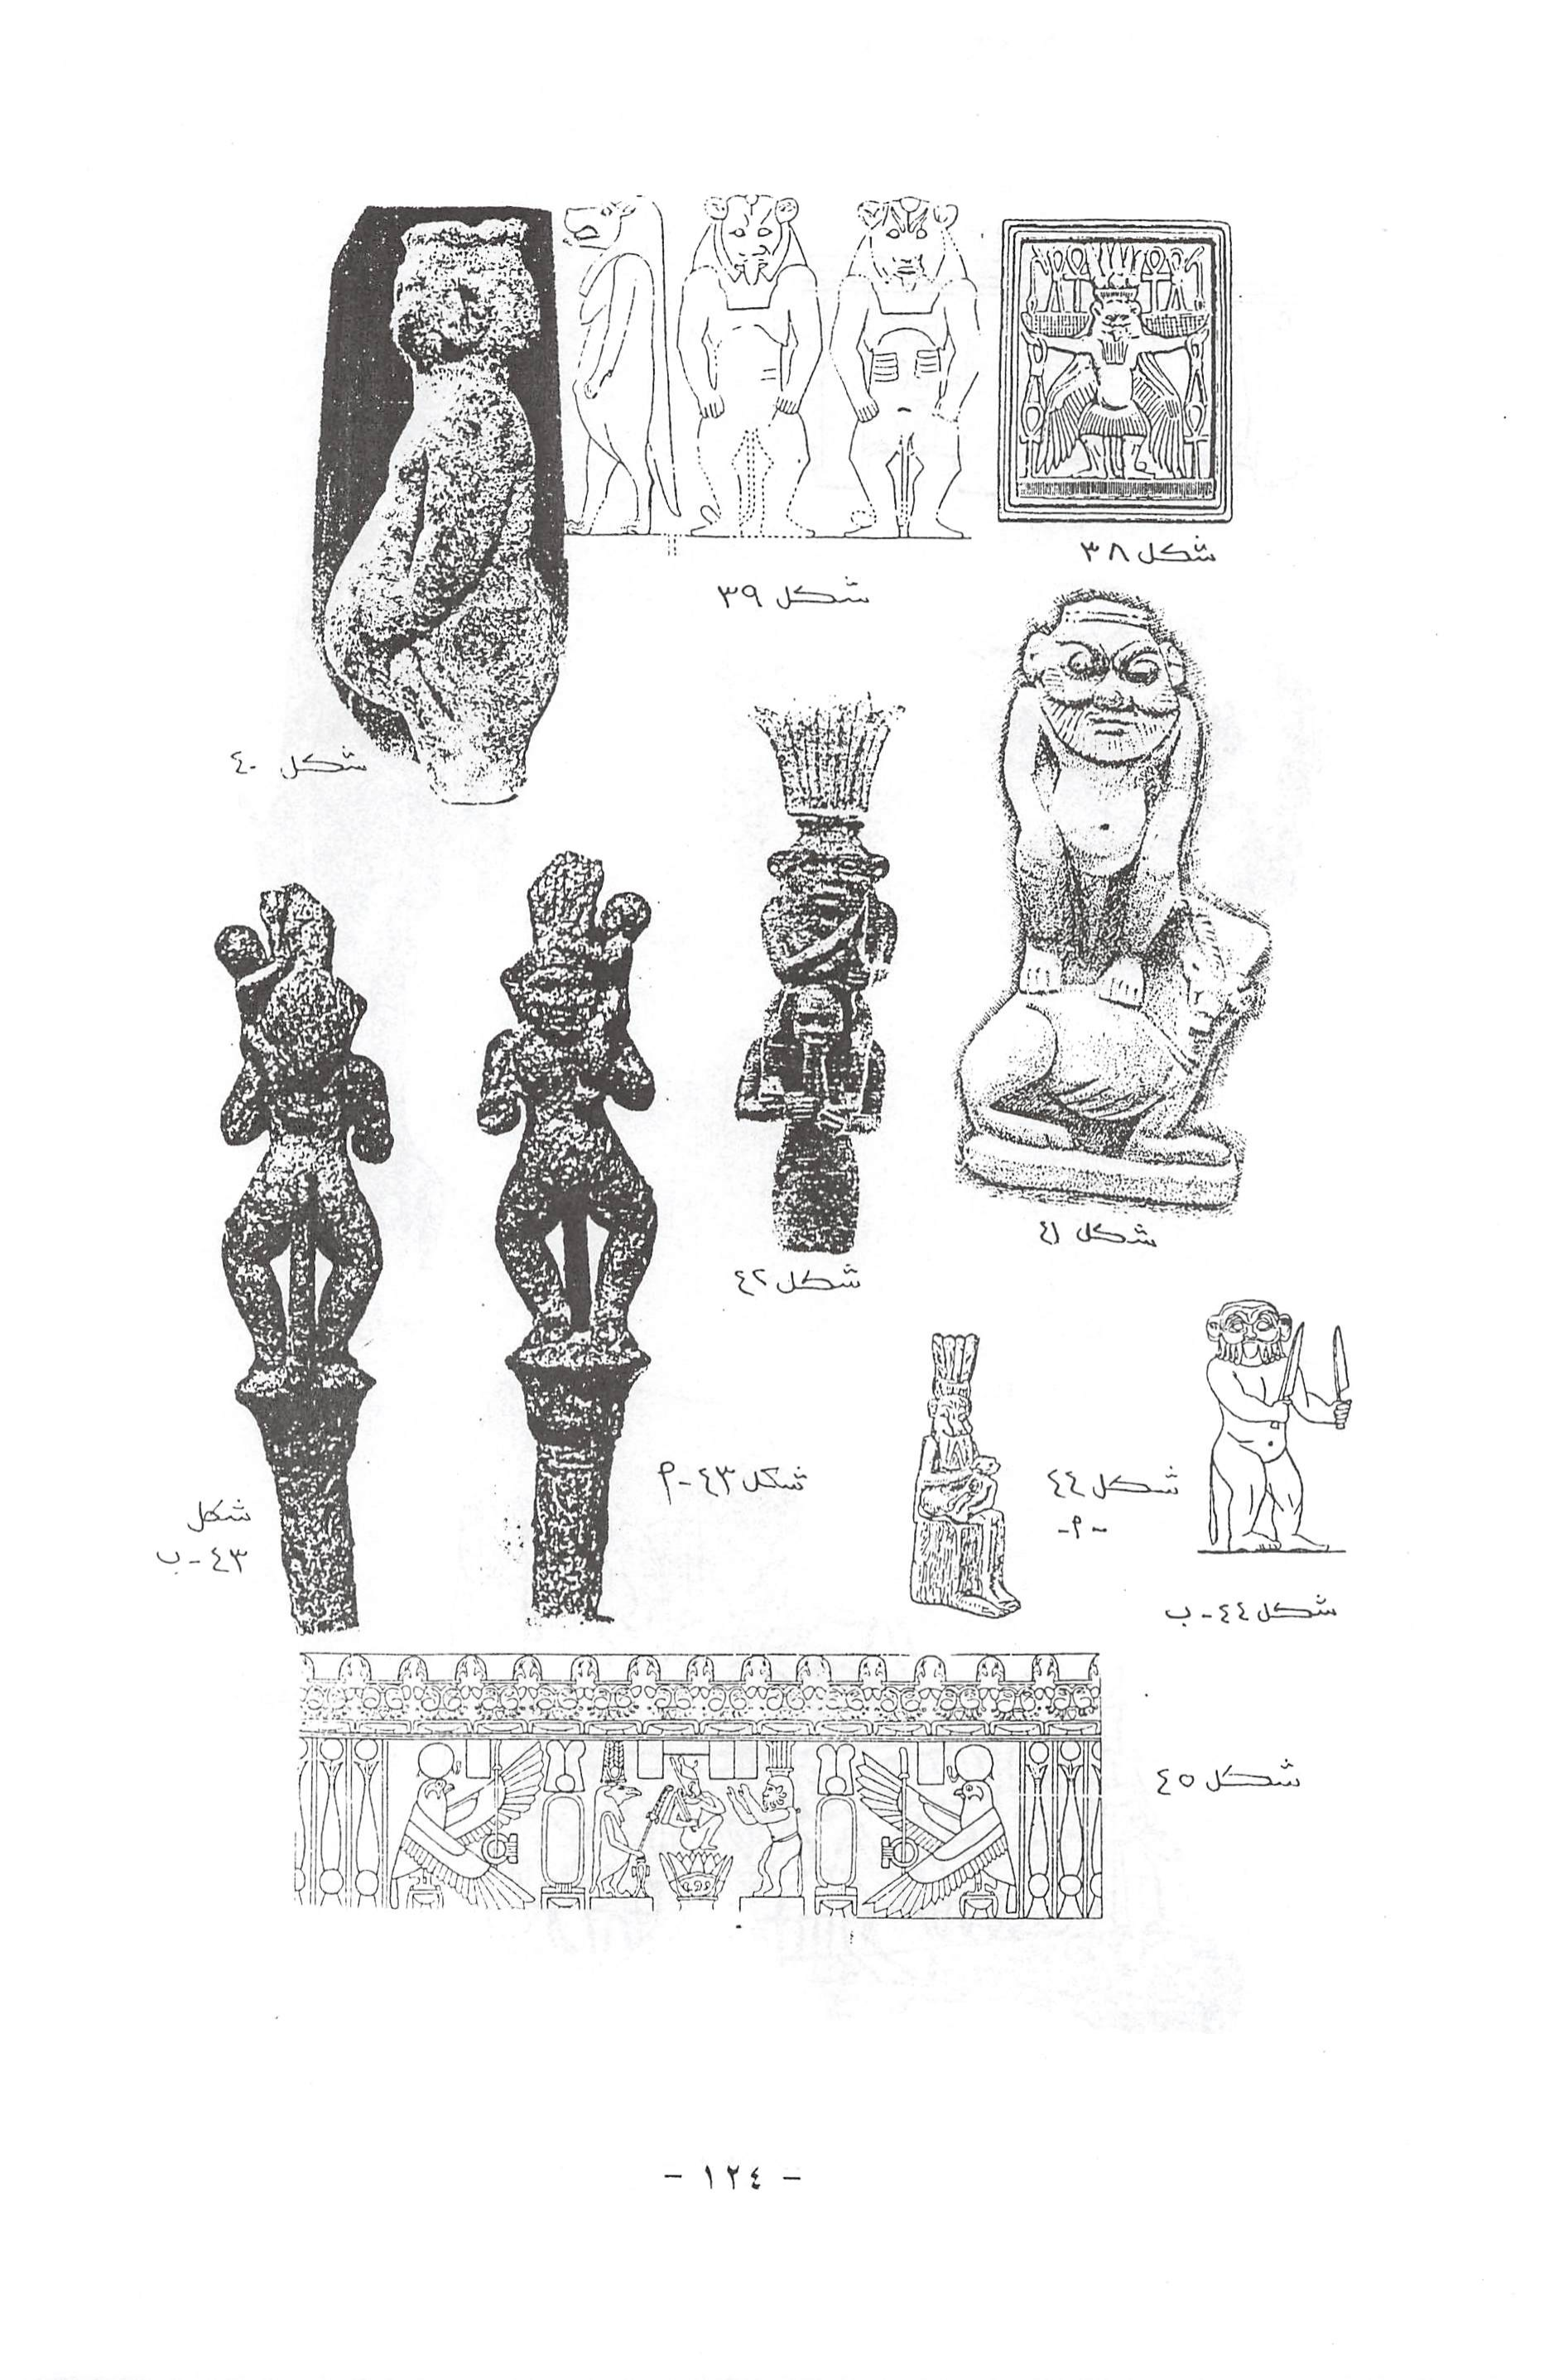 شكل ٣٨
شكل ٣٩
شكل ٤٠
شكل ٤١
شكل ٤٢
شكل ٤٣-م
شكل
٤٣-ب
شكل ٤٤
-م-
شكل ٤٤-ب
شكل ٤٥
- ١٢٤ -